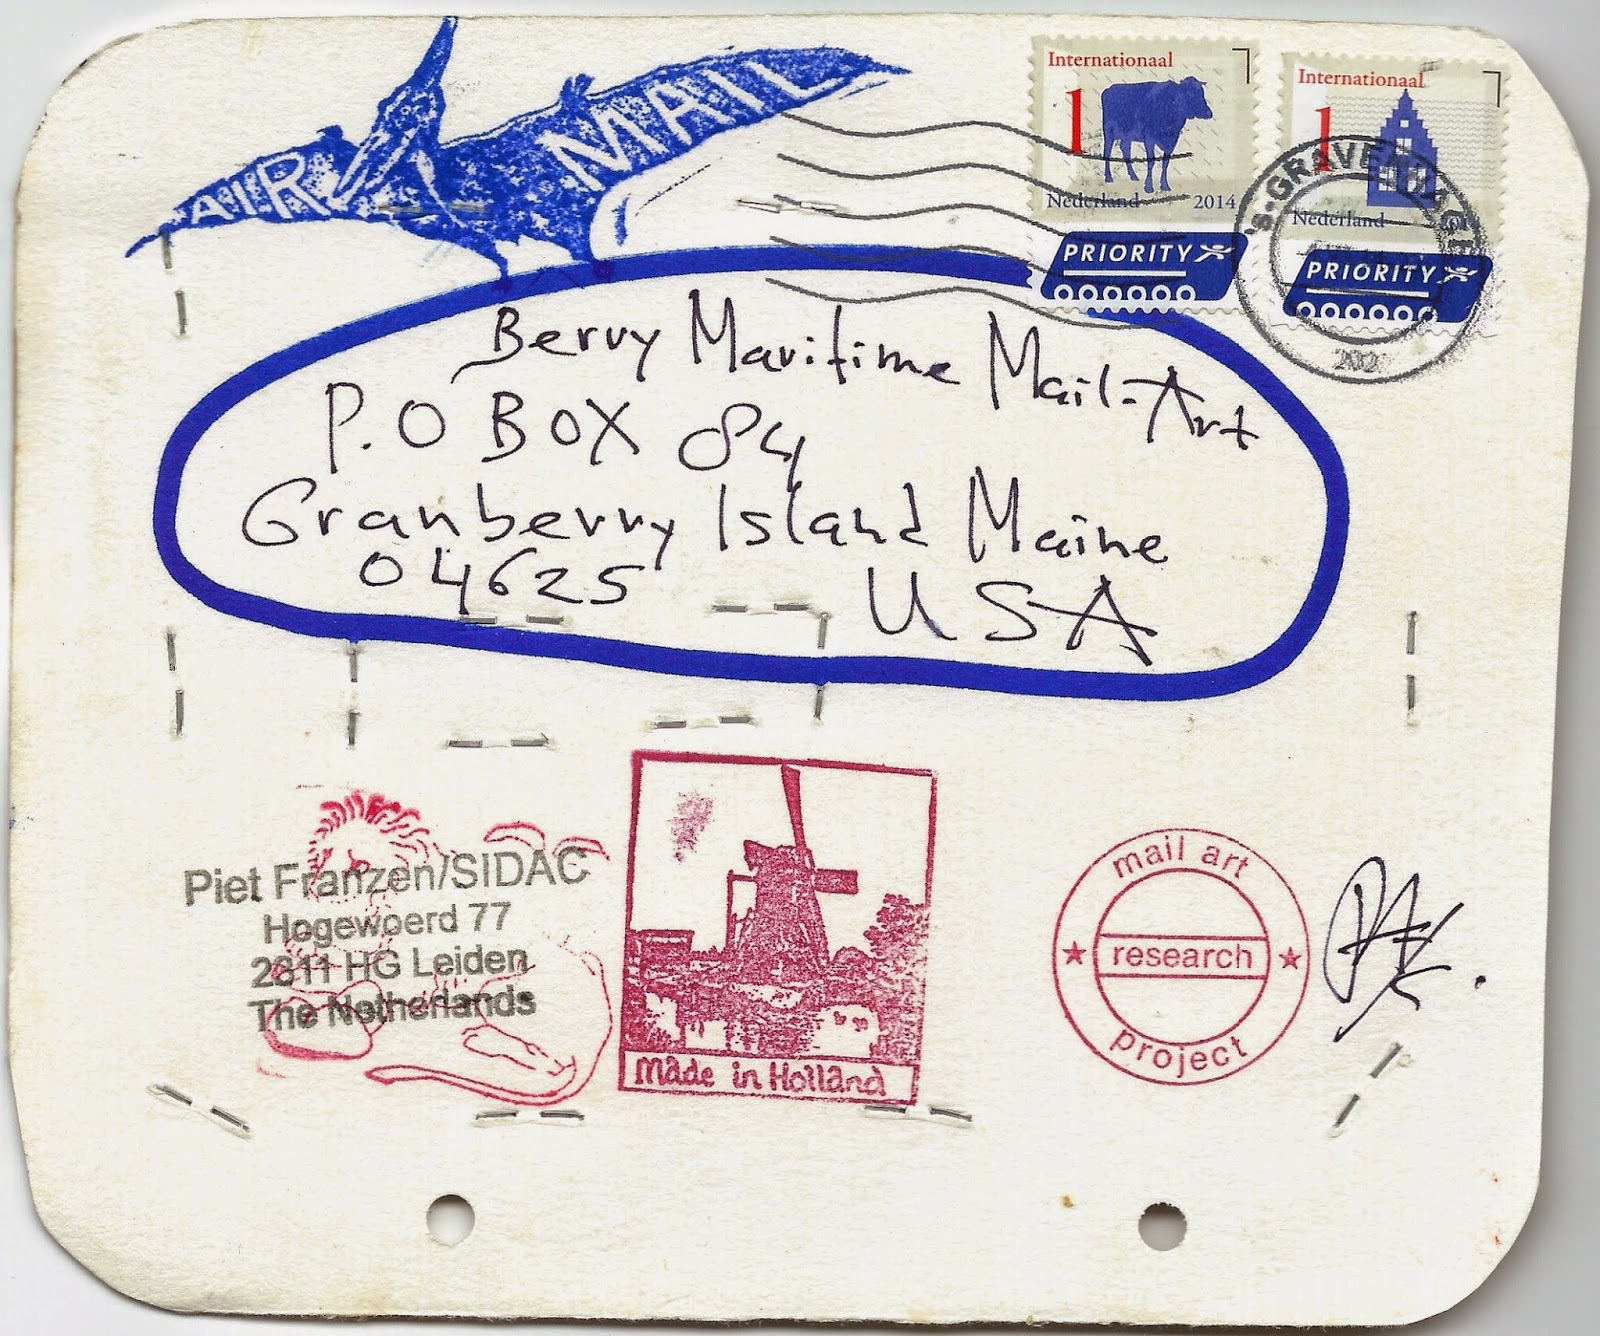 AIR MAIL
Internationaal
1
Nederland 2014
PRIORITY
Internationaal
1
Nederland
PRIORITY
Berry Maritime Mail-Art
P.O BOX 84
Granberry Island Maine
04625 USA
Piet Franzen/SIDAC
Hogewoerd 77
2311 HG Leiden
The Netherlands
Made in Holland
mail art
research
project